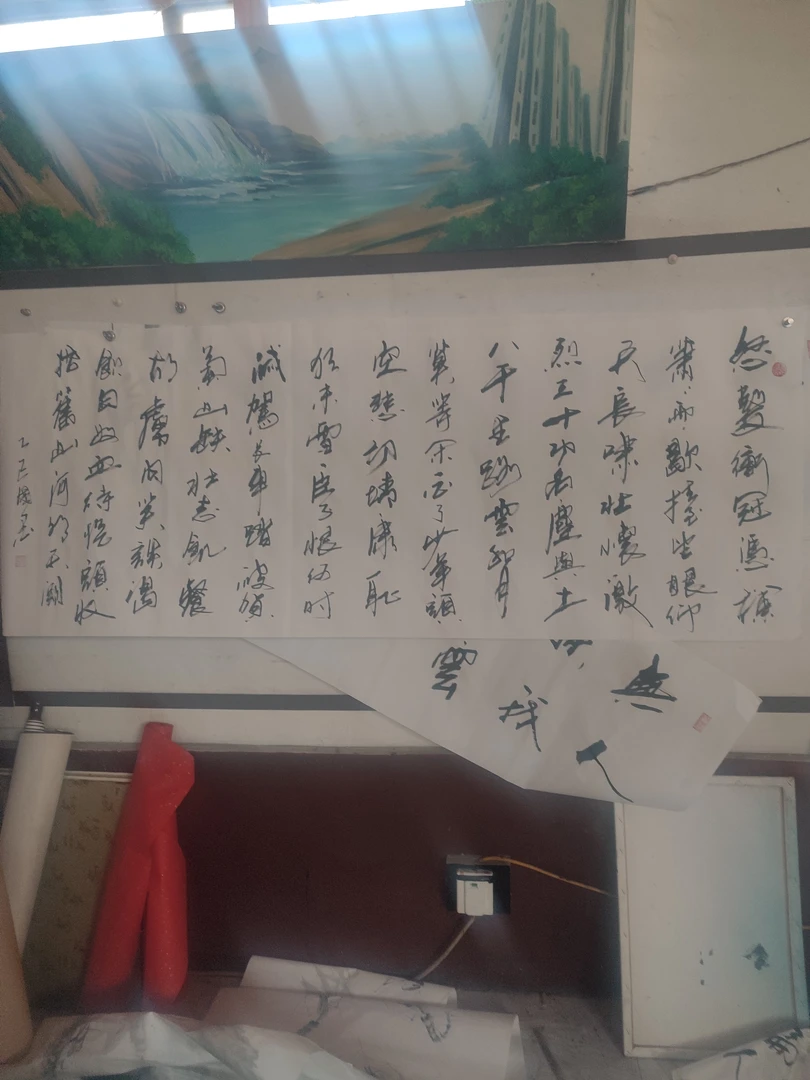 怒髮衝冠憑欄
瀟雨歇擡望眼仰
天長嘯壯懷激
烈三十功名塵與土
八千里路雲和月
莫等闲白了少年頭
空悲切靖康恥
猶未雪臣子恨何时
滅駕長車踏破賀
蘭山缺壯志飢餐
胡虜肉笑談渴
飲匈奴血待從頭收
拾舊山河朝天闕
乙巳
人
我
雲